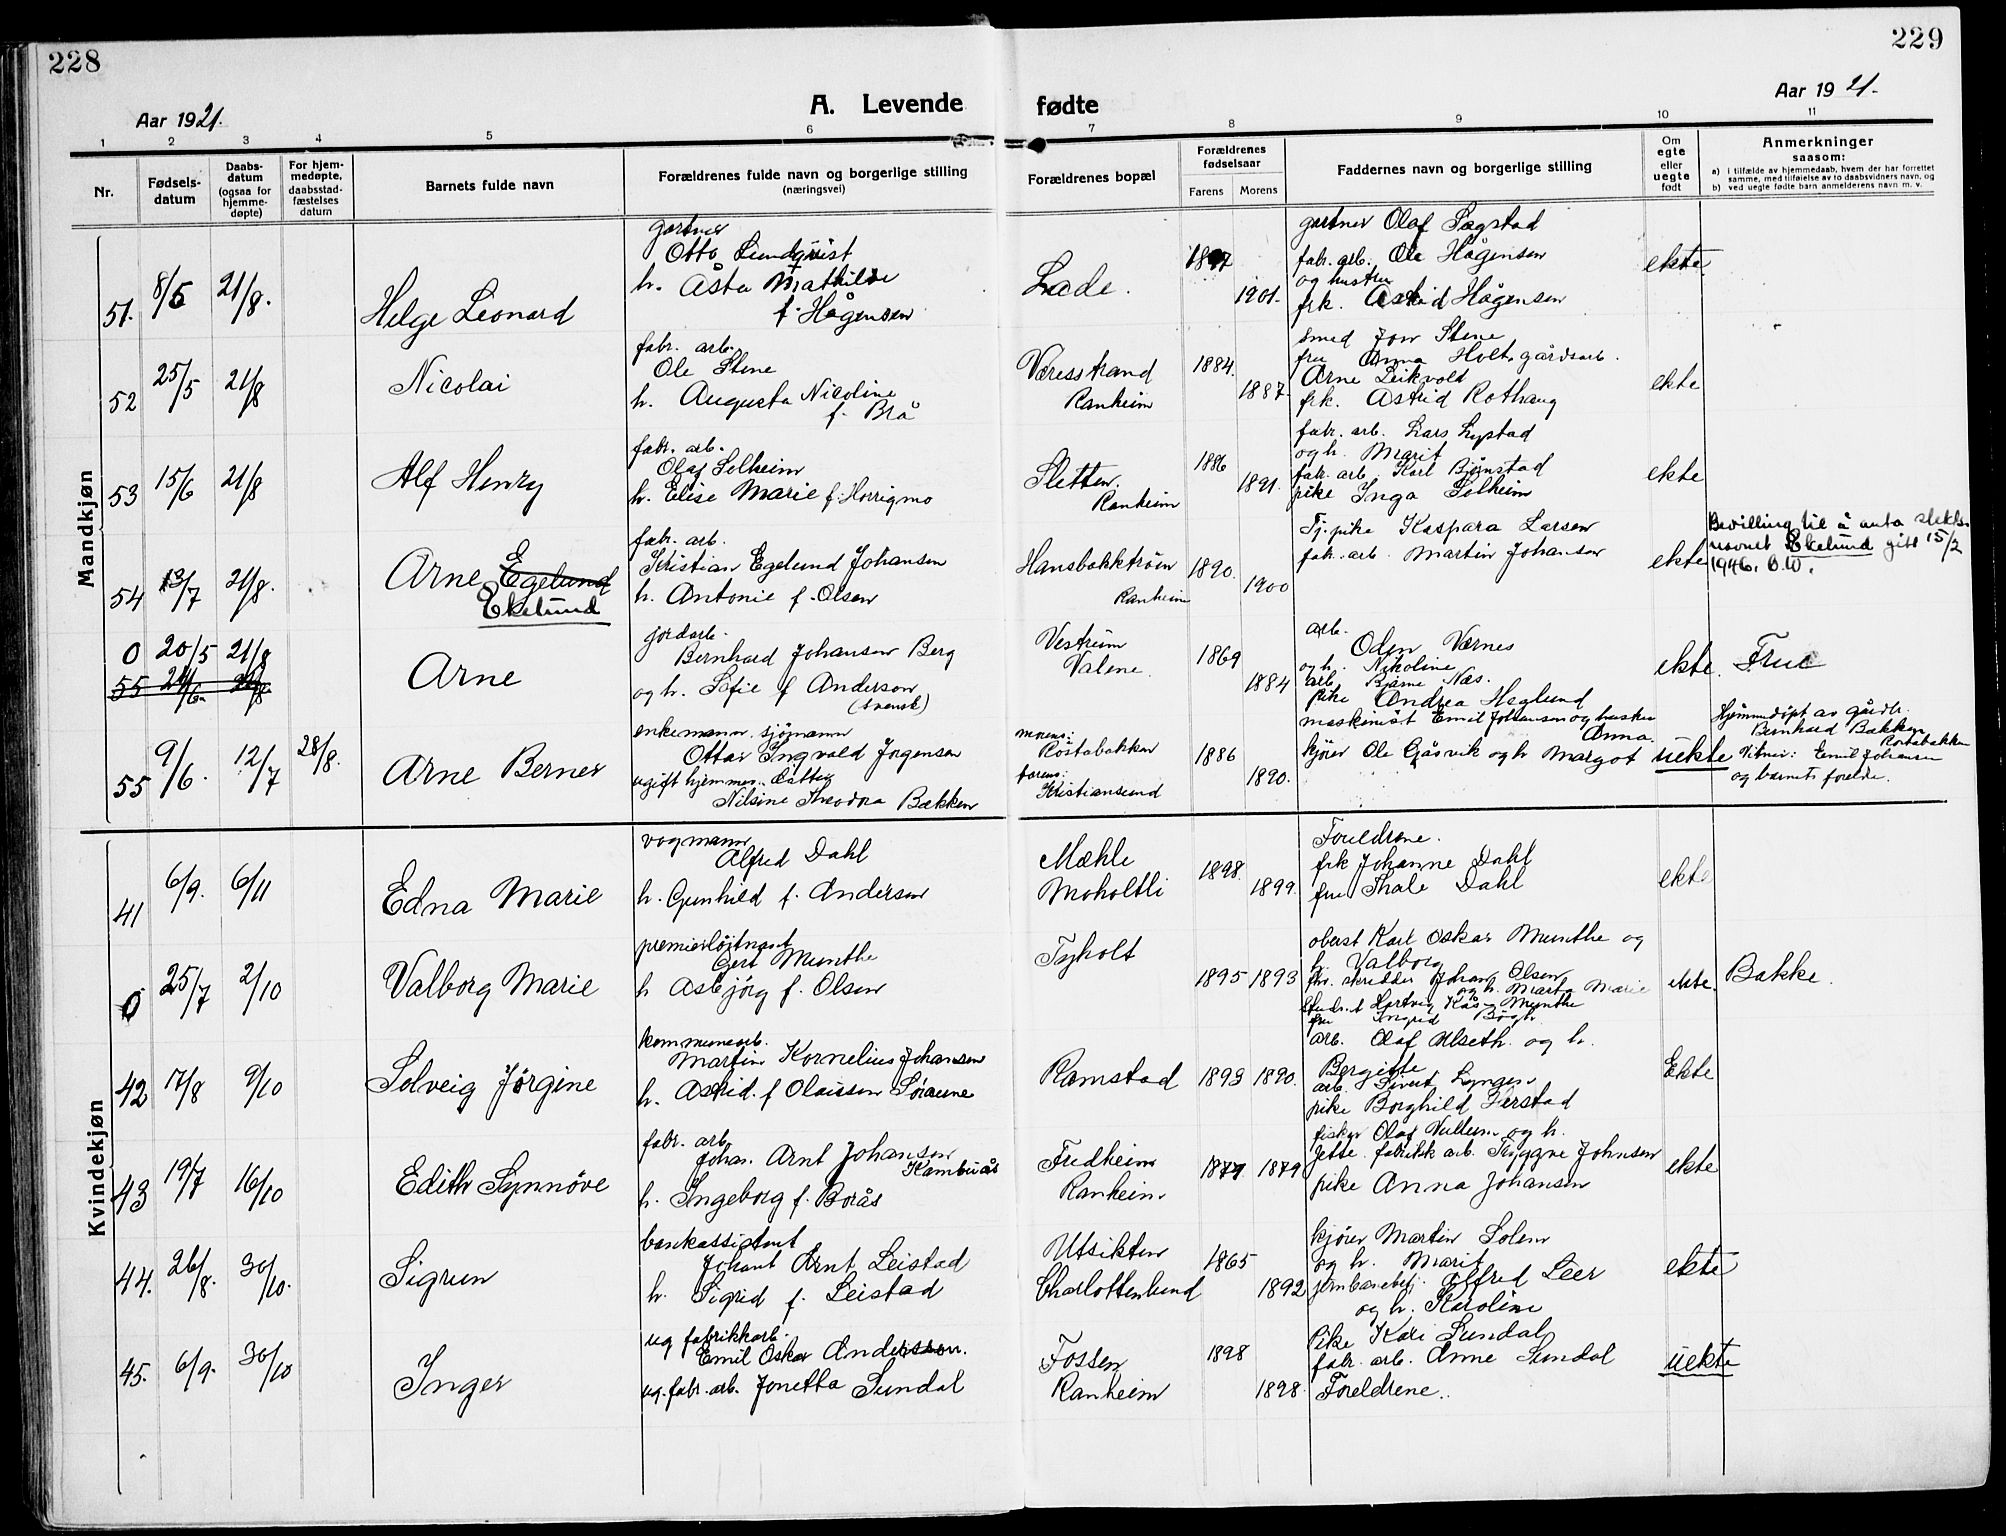 228
229
Aar 1921.
A. Levende fødte
Aar 1921.
1 2 3 4 5 6 7 8 9 10 11
Nr.
Fødsels-
datum
Daabs-
datum
(ogsaa for
hjemme-
døpte)
For hjem-
medøpte,
daabsstad-
fæstelses
datum
Barnets fulde navn
Forældrenes fulde navn og borgerlige stilling
(næringsvei)
Forældrenes bopæl
Forældrenes
fødselsaar
Farens Morens
Faddernes navn og borgerlige stilling
Om
egte
eller
uegte
født
Anmerkninger
saasom:
a) i tilfælde av hjemmedaab, hvem der har forrettet
samme, med tilføielse av to daabsvidners navn, og
b) ved uegte fødte barn anmelderens navn m. v.
Mandkjøn
51. 8/5 21/8.
Helge Leonard
gartner
Otto Lundqvist
h. Åsta Mathilde
f. Hågensen
Lade.
1897
1901.
gartner Olaf Sagstad
fabr. arb. Ole Hågensen
og hustru
frk. Astrid Hågensen
ekte
52 25/5 21/8
Nicolai
fabr. arb.
Ole Stene
h. Augusta Nicoline
f. Brå
Væresstrand
Ranheim
1884.
1887.
smed Jon Stene
fru Anna Holt, gårdsarb.
Arne Leikvold
frk. Astrid Rothaug
ekte
53 15/6 21/8
Alf Henry
fabr. arb.
Olaf Solheim
h. Elise Marie f. Horrigmo
Sletten.
Ranheim
1886
1891.
fabr. arb. Lars Lystad
og h. Marit
fabr. arb. Karl Bjønstad
pike Inga Solheim
ekte
54 13/7 21/8.
Arne Egelund
Ekelund
fabr. arb.
Kristian Egelund Johansen
h. Antonie f. Olsen
Hansbakktrøen
Ranheim
1890.
1900
Tj. pike Kaspara Larsen
fabr. arb. Martin Johansen
ekte
Bevilling til å anta slekts-
navnet Ekelund gitt 15/2
1946. O.W.
0 20/5 21/8
55
Arne
jordarb.
Bernhard Johansen Berg
og h. Sofie f Anderson
(svensk)
Vestrum
Valene.
1869
1884
arb.
Oden Værnes
og h. Nikoline
arb. Bjarne Næs.
pike Andrea Heglund
ekte.
True
55 9/6. 12/7 28/8.
Arne Berner
enkemann. sjømann
Ottar Ingvald Jørgensen
ugift hjemmev. datter
Nilsine Theodora Bakken
morens:
Rostabakken
farens:
Kristiansund
1886
1890.
maskinist Emil Johansen og hustru
Anna.
kjører Ole Gåsvik og h Margot
uekte
Hjemmedøpt av gårdbr.
Bernhard Bakken
Rostabakken
Vitner: Emil Johansen
og barnets forelde.
Kvindekjøn
41 6/9. 6/11
Edna Marie
vogmann
Alfred Dahl
h. Gunhild f. Andersen
Mæhle
Moholtli
1898.
1899.
Foreldrene.
frk Johanne Dahl
fru Thale Dahl
ekte
0 25/7 2/10
Valborg Marie
premierløitnant
Gert Munthe
h Asbjørg f. Olsen
Tyholt
1895 1893
oberst Karl Oskar Munthe og
h. Valborg
fhv. skredder Johan Olsen
og h. Marta Marie
Student Hartvig Kås Munthe
fru Ingrid Bøgh
ekte.
Bakke.
42 17/8 9/10
Solveig Jørgine
kommunearb.
Martin Kornelius Johansen
h. Astrid. f Olaussen Soraune
Ramstad
1893 1890.
arb. Olaf Ulseth og h.
Bergitte
arb. Sivert Lyngen
pike Borghild Ferstad
Ekte
43 19/7 16/10
Edith Synnøve
fabr. arb
Johan Arnt Johansen
Kambuås
h. Ingeborg f. Borås
Fredheim
Ranheim
1877 1879
fisker Olaf Vullum og h.
Jette. fabrikk arb. Tryggve Johnsen
pike Anna Johansen
ekte
44. 26/8. 30/10.
Sigrun
bankassistent
Johant Arnt Leistad
h. Sigrid f. Leistad
Utsikten
Charlottenlund
1865
1892
kjører Martin Solem
og h. Marit
jernbanebetj. Alfred Leer
og h. Karoline
ekte
45. 6/9. 30/10
Inger
ug fabrikkarb.
Emil Oskar Anderssen.
ug. fabr. arb. Jonetta Sundal
Fossen
Ranheim
1898
1898.
Pike Kari Sundal
fabr. arb. Anne Sundal
Foreldrene.
uekte